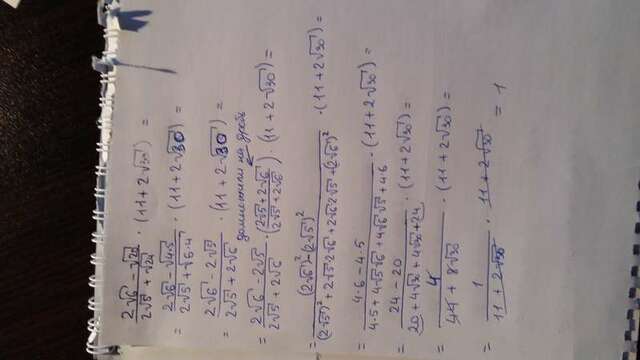 (2√6 - √20)/(2√5 + √24) · (11 + 2√30) =
= (2√6 - √4·5)/(2√5 + √6·4) · (11 + 2√30) =
= (2√6 - 2√5)/(2√5 + 2√6) · (11 + 2√30) =
домножили на дробь
= (2√6 - 2√5)/(2√5 + 2√6) · ((2√5 + 2√6)/(2√5 + 2√6)) · (11 + 2√30) =
= ((2√6)² - (2√5)²)/((2√5)² + 2√5·2√6 + 2√6·2√5 + (2√6)²) · (11 + 2√30) =
= (4·6 - 4·5)/(4·5 + 4√5√6 + 4√6√5 + 4·6) · (11 + 2√30) =
= (24 - 20)/(20 + 4√30 + 4√30 + 24) · (11 + 2√30) =
= 4/(44 + 8√30) · (11 + 2√30) =
= 1/(11 + 2√30) · 11 + 2√30 = 1